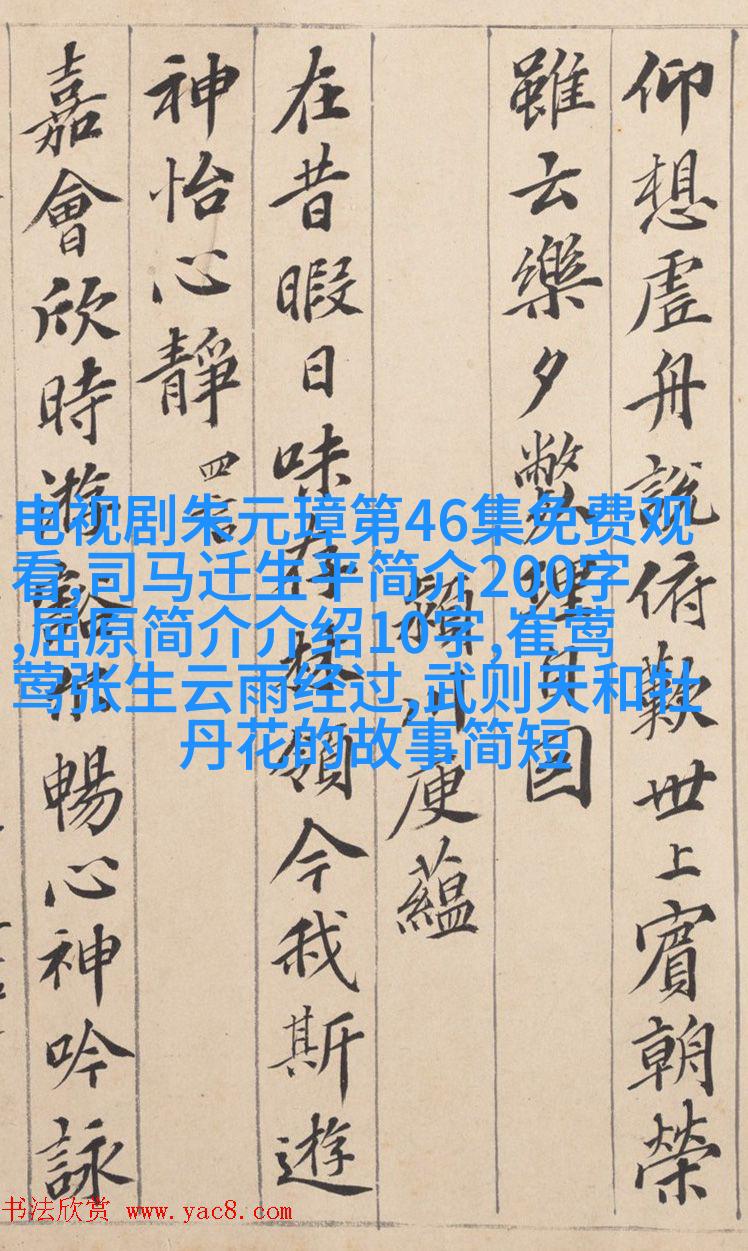 仰想虛舟說俯歎世上賓朝榮
雖云樂夕弊理自因
潁川庾蘊
在昔暇日味存林嶺今我斯遊
神怡心靜 四言
嘉會欣時游豁爾暢心神吟詠
电视剧朱元璋第46集免费观
看,司马迁生平简介200字
,屈原简介介绍10字,崔莺
莺张生云雨经过,武则天和牡
丹花的故事简短
书法欣赏 www.yac8.com